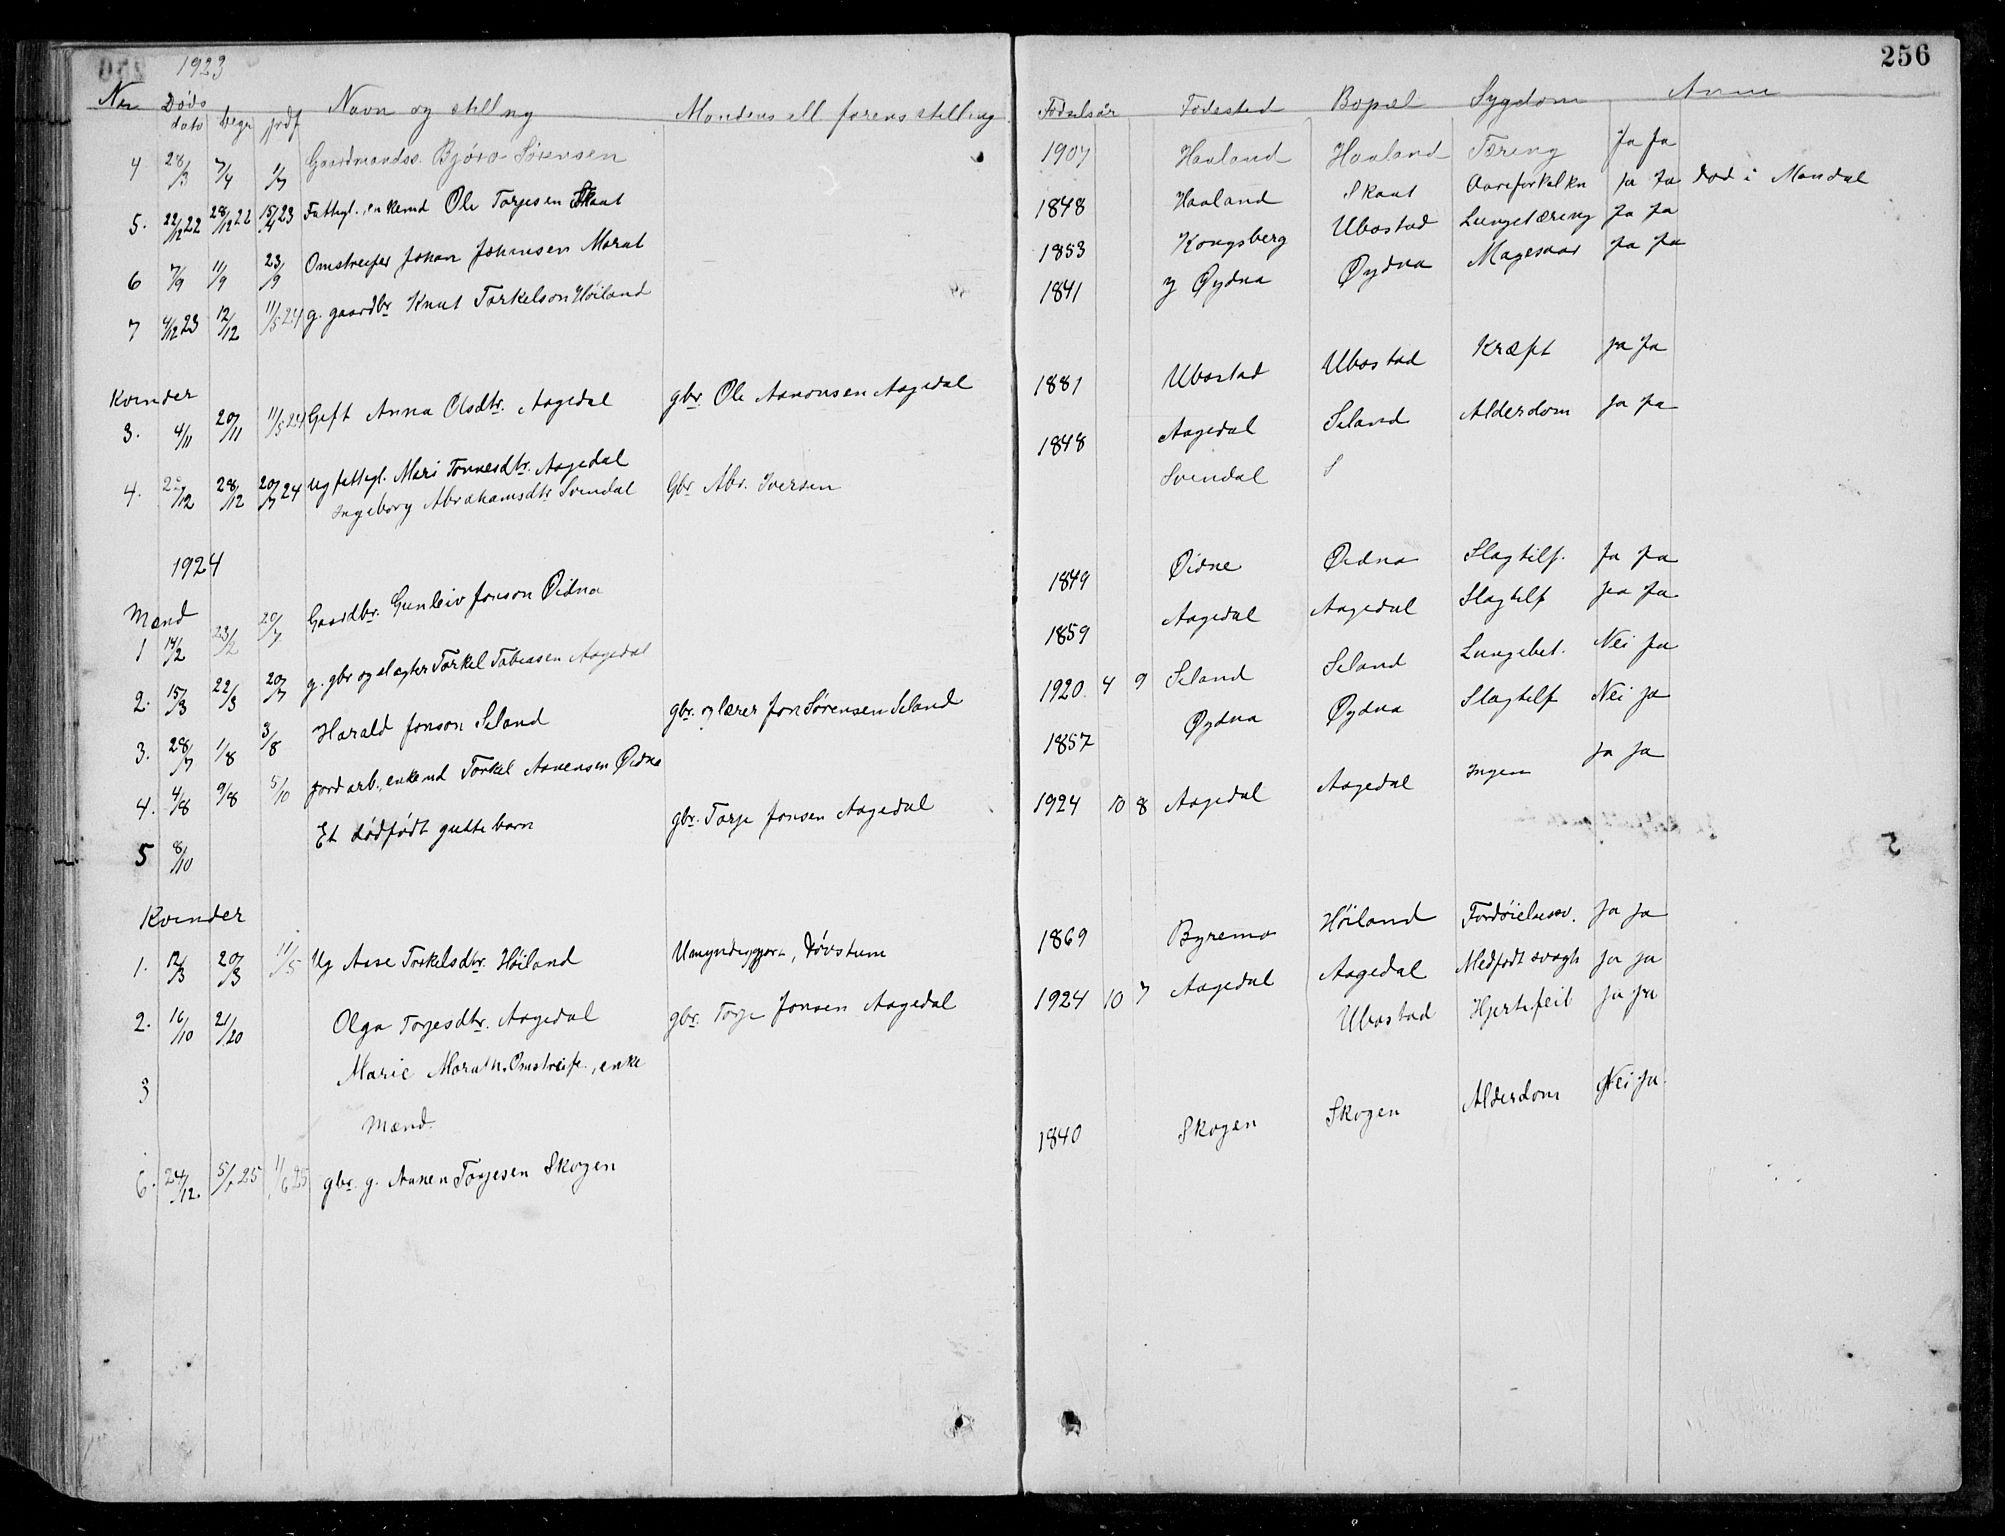 256
1923
Nr. Døds dato begr. jrdf Navn og stilling Mandens ell farens stilling Fødselsår Fødested Bopæl Sygdom Anm
4 28/3 7/4 1/7 Gaardmandss. Bjøro Sørensen 1907 Haaland Haaland Tæring Ja Ja
5. 22/12 22 28/12 22 15/4 23 Fattigl. enkemd Ole Torjesen Skaat 1848 Haaland Skaat Aareforkalkn Ja Ja død i Mandal
6 7/9 11/9 23/9 Omstreifer Johan Johansen Morat 1853 Kongsberg Ubostad Lungetæring Ja Ja
7 4/12 23 12/12 11/5 24 g. gaardbr Knut Torkelson Høiland 1841 y Øydna Øydna Magesaar Ja Ja
Kvinder
3. 4/11 20/11 11/5 24 Gift Anna Olsdtr. Aagedal gbr. Ole Aanonsen Aagedal 1881 Ubostad Ubostad Kræft Ja Ja
4. 22/12 28/12 20/7 24 Ug fattigl. Mari Tønnesdtr. Aagedal 1848 Aagedal Seland Alderdom Ja Ja
Ingeborg Abrahamsdtr Svendal Gbr Abr. Iversen Svendal S
1924
Mænd
1 14/2 23/2 20/7 Gaardbr. Gunleiv Jonson Øidna 1849 Øidne Øidna Slagtilf. Ja Ja
2. 15/3 22/3 20/7 g. gbr og slagter Torkel Tobiasen Aagedal 1859 Aagedal Aagedal Slagtilf Ja Ja
3. 28/7 1/8 3/8 Harald Jonson Seland gbr. og lærer Jon Sørensen Seland 1920. 4 9 Seland Seland Lungebet. Nei Ja
4. 4/8 9/8 5/10 jordarb., enkemd Torkel Aanensen Øidna 1857 Øydna Øydna Slagtilf Nei Ja
5 8/10 Et dødfødt guttebarn gbr. Torje Jonsen Aagedal 1924 10 8 Aagedal Aagedal Ingen Ja Ja
Kvinder
1. 12/3 20/3 11/5 Ug Aase Torkelsdtr. Høiland Umyndiggjort, Døvstum 1869 Byremo Høiland Fordøielsessv. Ja Ja
2. 16/10 21/20 Olga Torjesdtr. Aagedal gbr. Torje Jonsen Aagedal 1924 10 7 Aagedal Aagedal Medfødt svagh Ja Ja
3 Marie Morat n. Omstreife., enke Ubostad Hjertefeil Ja Ja
Mænd.
6. 24/12. 5/1 25 11/6 25 gbr. g. Aanen Torjesen Skogen 1840 Skogen Skogen Alderdom Nei Ja.